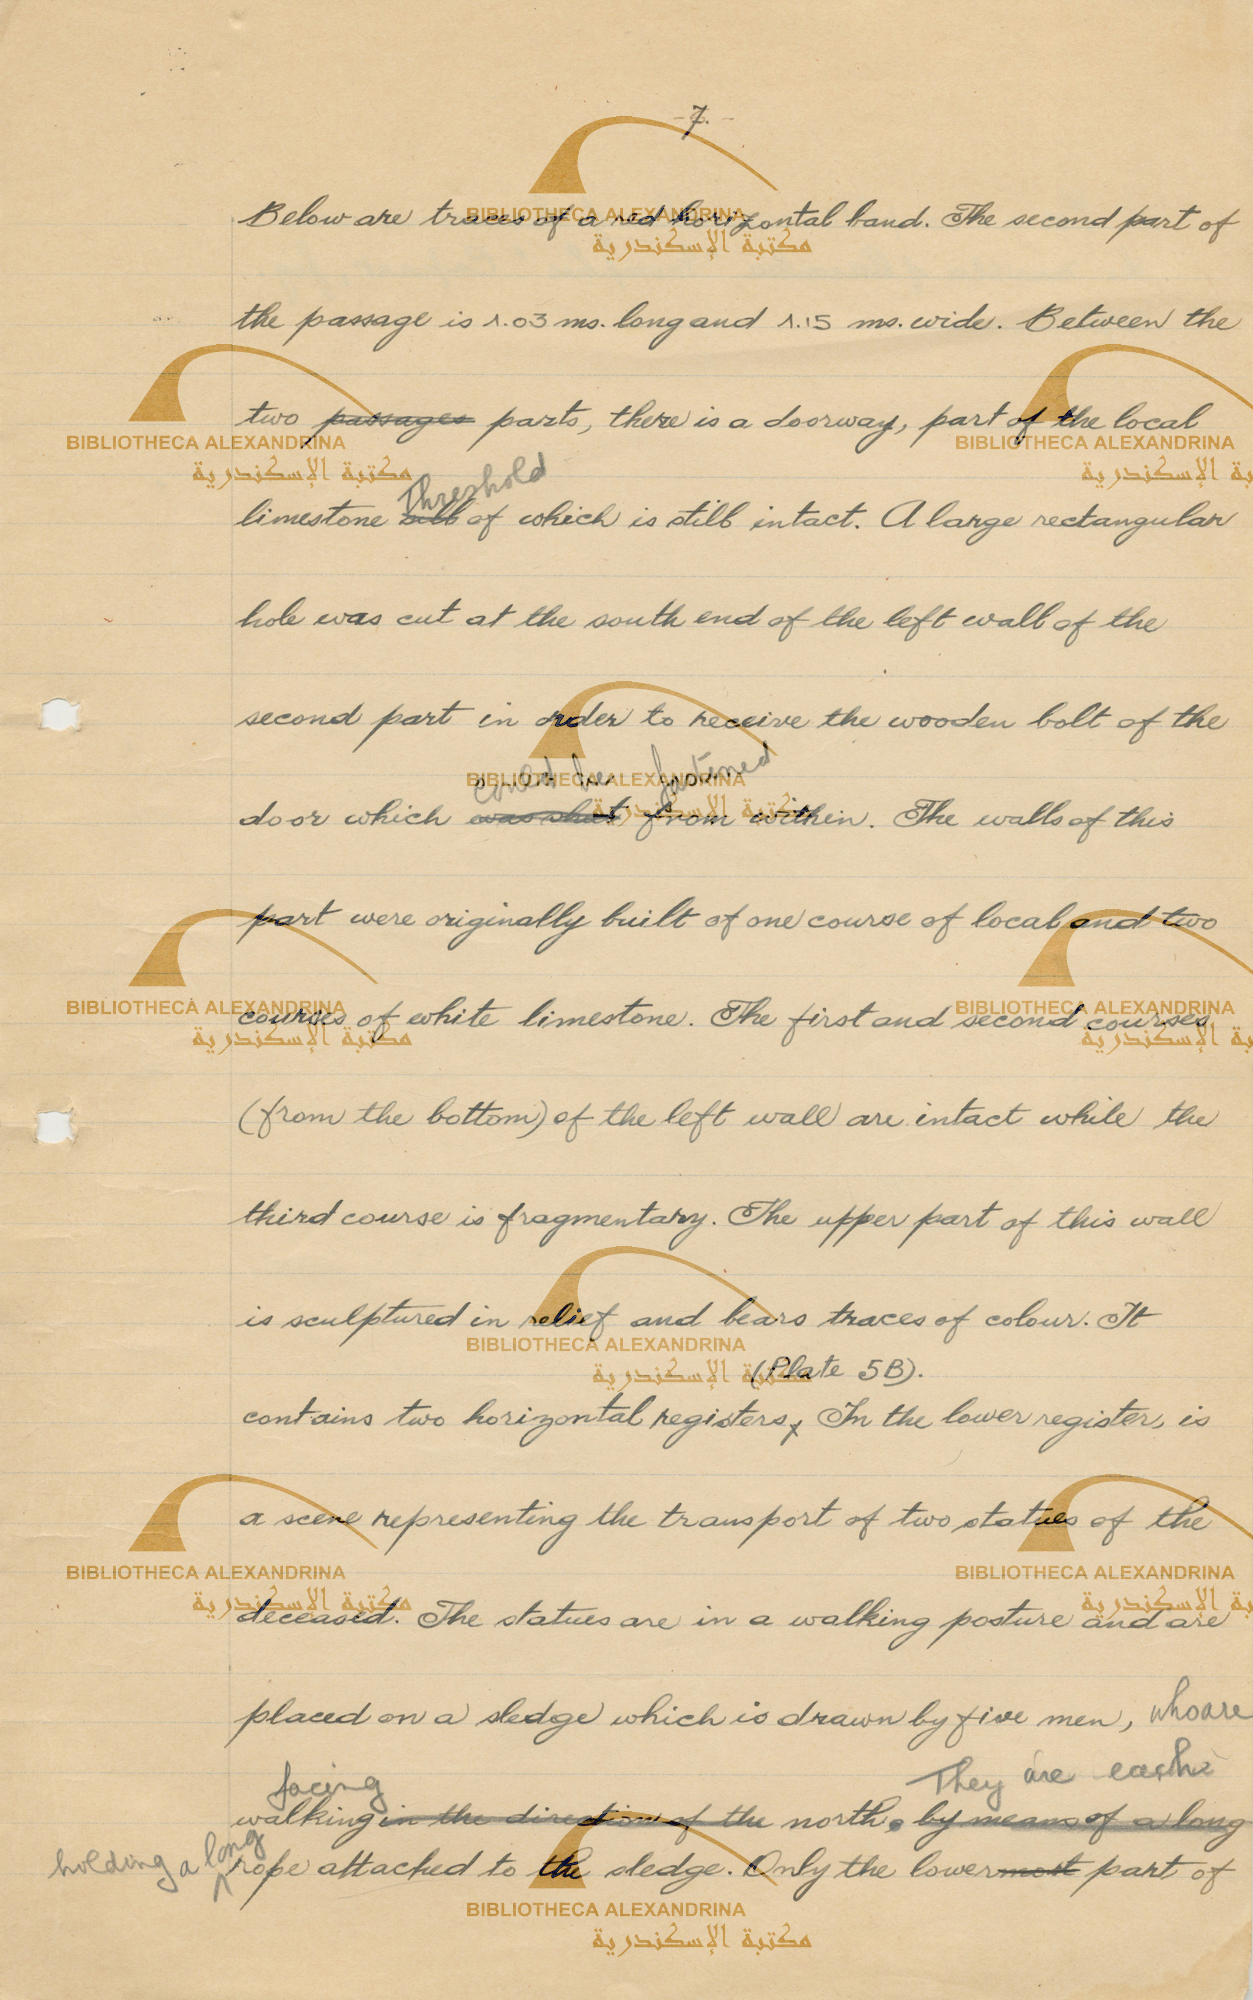 - 7. -
Below are traces of a red horizontal band. The second part of
the passage is 1.03 ms. long and 1.15 ms. wide. Between the
two passages parts, there is a doorway, part of the local
Threshold
limestone sill of which is still intact. A large rectangular
hole was cut at the south end of the left wall of the
second part in order to receive the wooden bolt of the
could be fastened
door which was shut from within. The walls of this
part were originally built of one course of local and two
courses of white limestone. The first and second courses
(from the bottom) of the left wall are intact while the
third course is fragmentary. The upper part of this wall
is sculptured in relief and bears traces of colour. It
(Plate 5B).
contains two horizontal registers, In the lower register, is
a scene representing the transport of two statues of the
deceased. The statues are in a walking posture and are
placed on a sledge which is drawn by five men, who are
facing They are each
walking in the direction of the north. by means of a long
holding a long rope attached to the sledge. Only the lowermost part of
BIBLIOTHECA ALEXANDRINA
مكتبة الإسكندرية